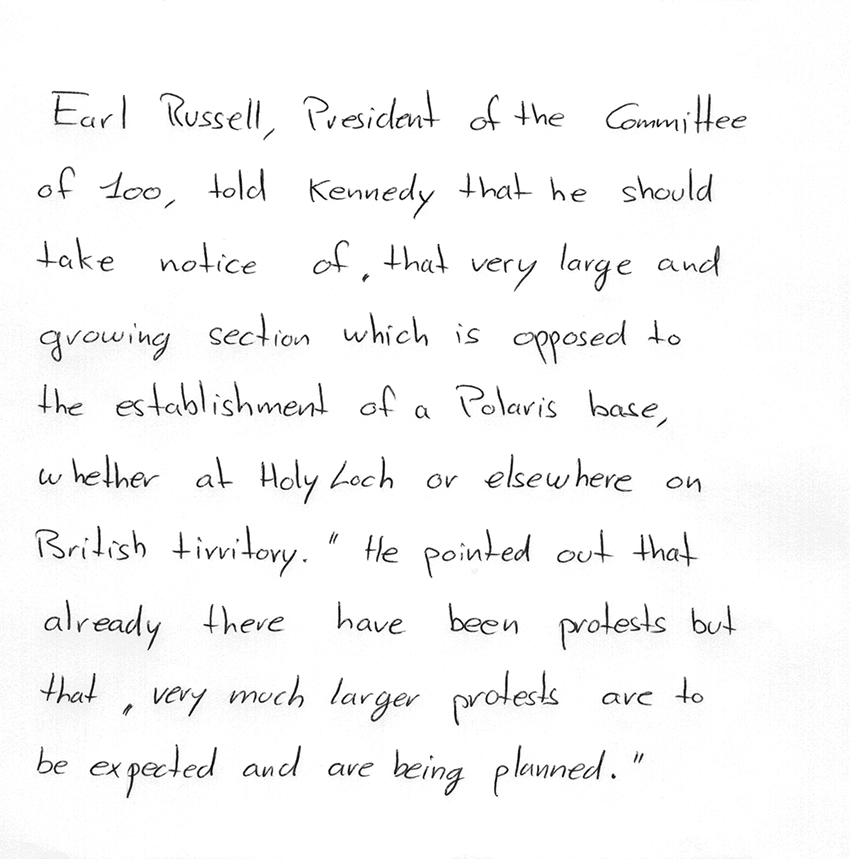 Earl Russell, President of the Committee
of 100, told Kennedy that he should
take notice of „ that very large and
growing section which is opposed to
the establishment of a Polaris base,
whether at Holy Loch or elsewhere on
British tirritory." He pointed out that
already there have been protests but
that „ very much larger protests are to
be expected and are being planned."